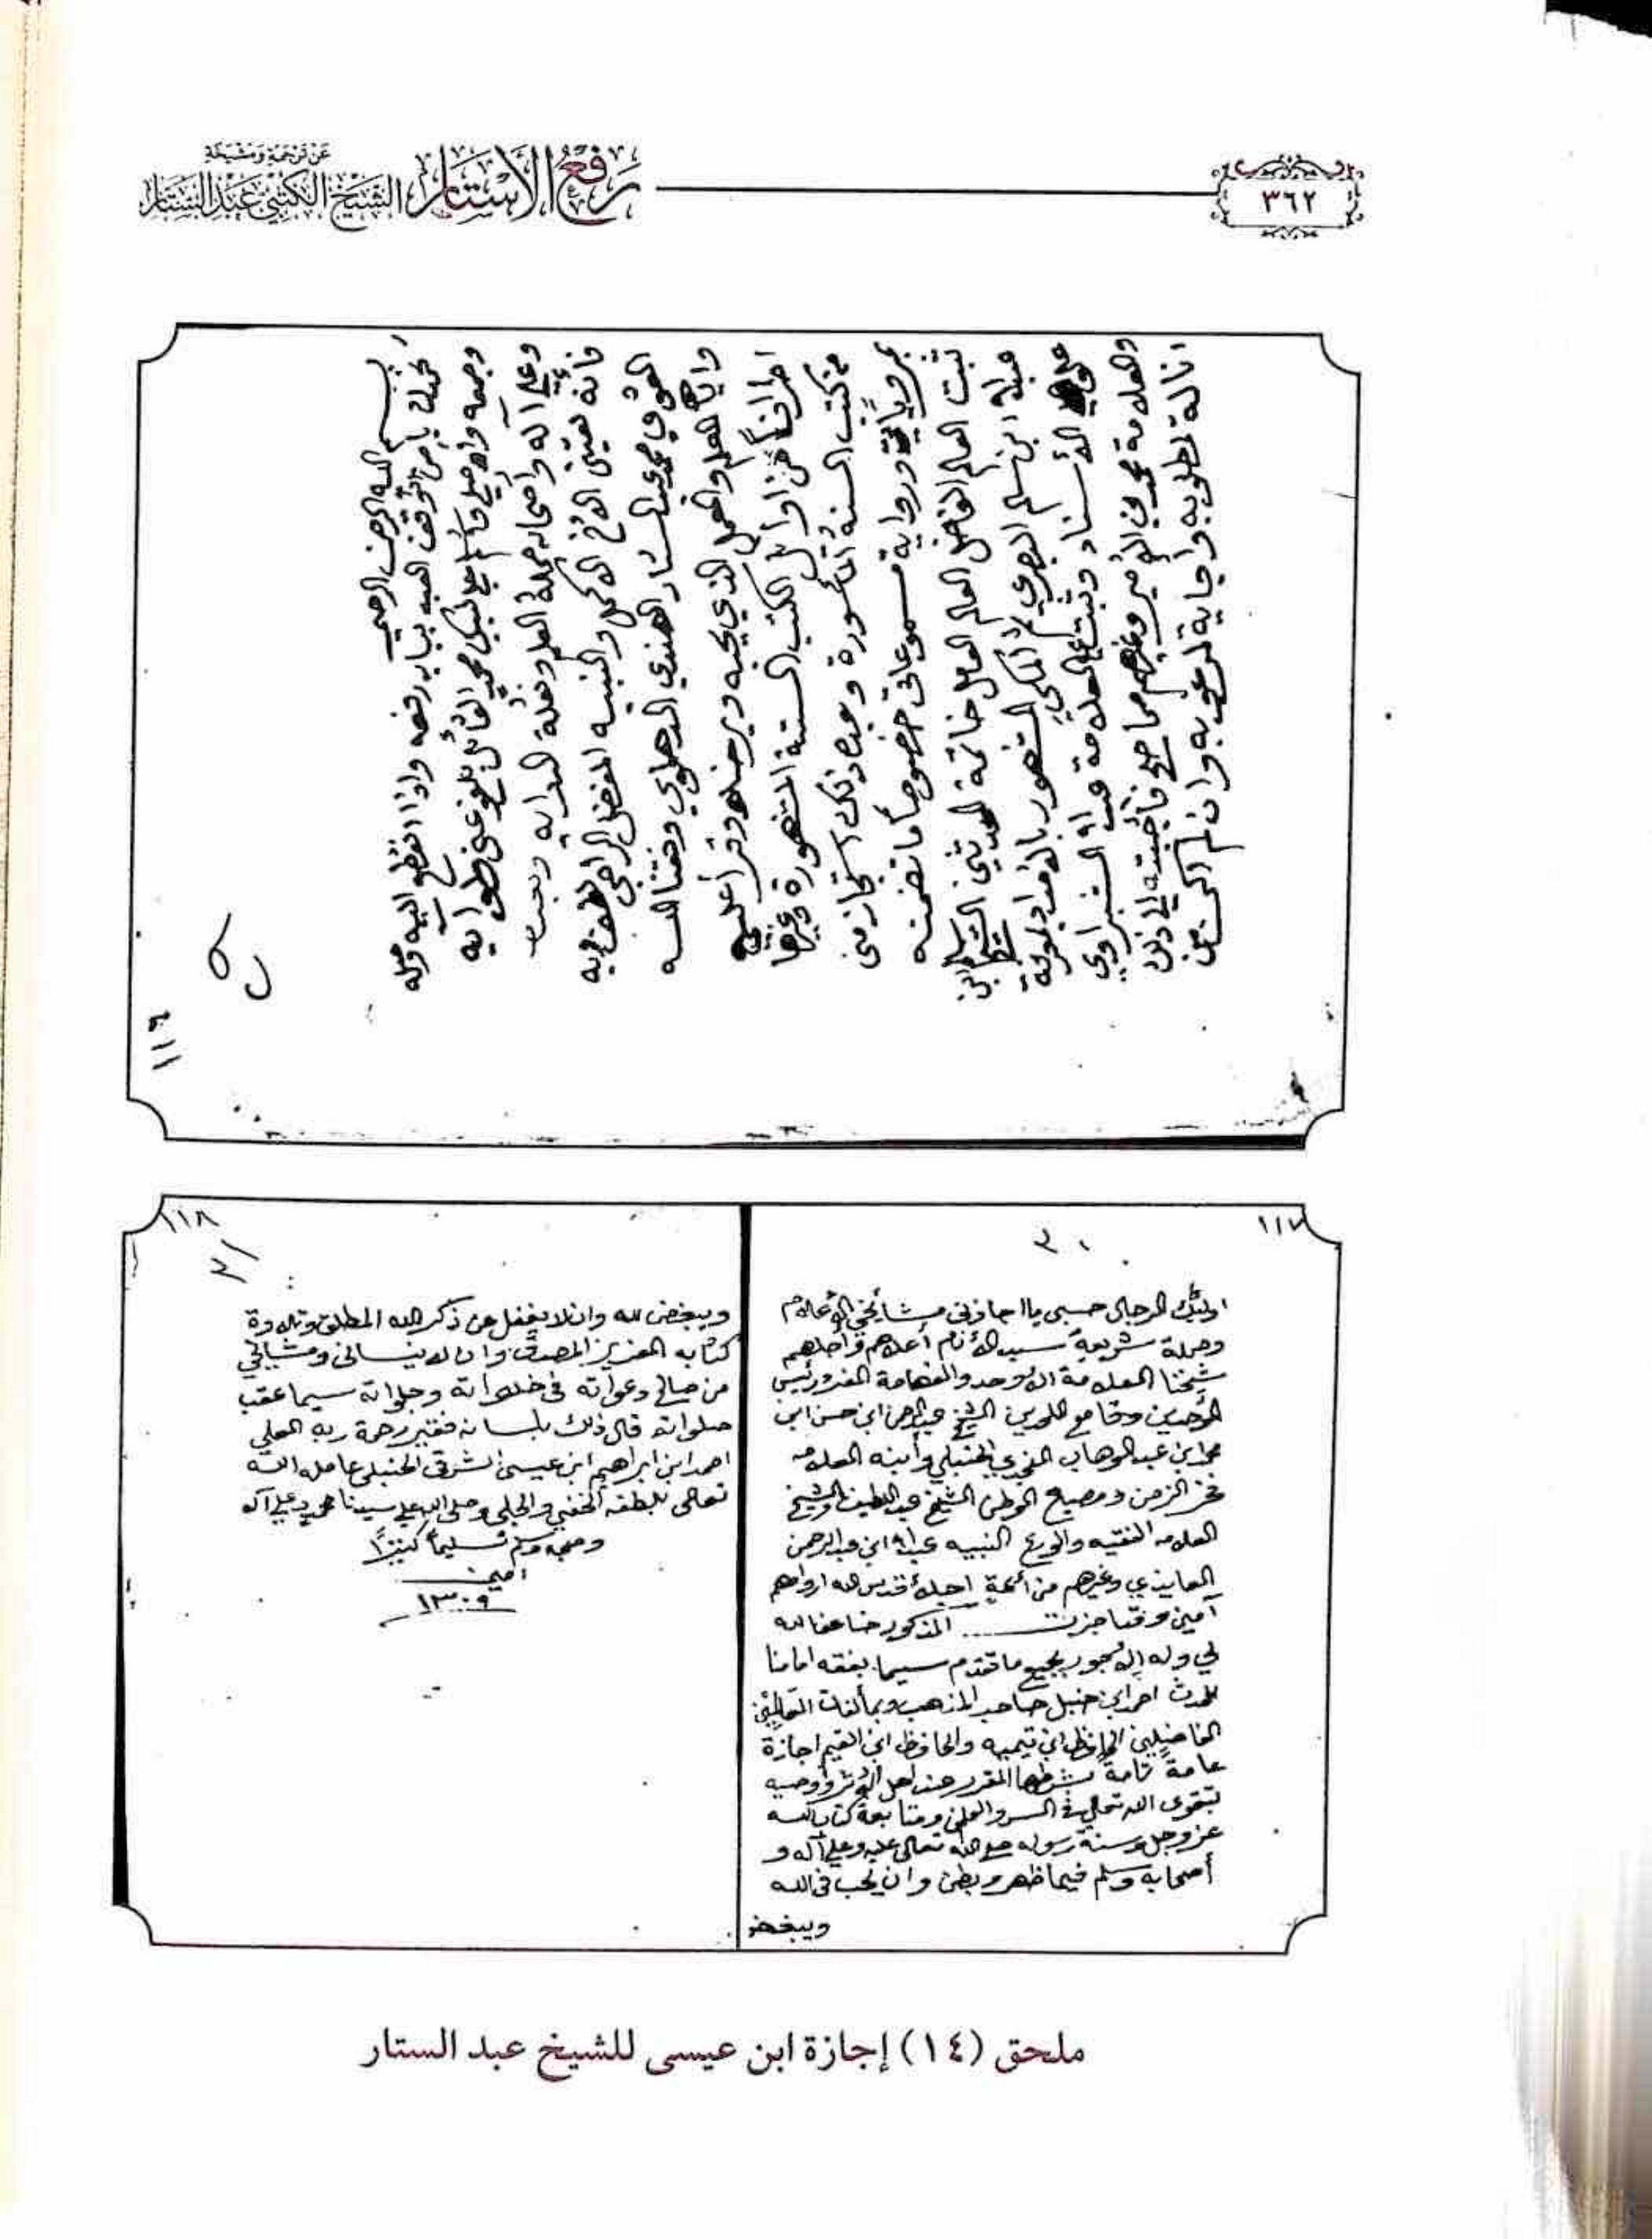 ٣٦٢
رفع الأستار
عن ترجمة ومشيخة
الشيخ الكتبي عبد الستار
١١٦
بسم الله الرحمن الرحيم
نحمدك يا من العبد ببابه رفعه واذا انقطع اليه وصله
وعلى آله واصحابه حملة العلم ونقلة
فانه لقيني الاخ الاكمل والنبيه المفضل الراجي لطف ربه
محمد عبد الستار الهندي الدهلوي وفقنا الله
واياه للعلم والعمل الذي يحبه ويرضاه وقرأ علي
اطرافاً من اوائل الكتب الستة المشهورة وغيرها
من كتب السنة المأثورة وبعد ذلك استجاز مني
بمروياتي ورواية مسموعاتي خصوصاً ما تضمنه
ثبت العالم الفاضل العالم العامل خاتمة المحدثين الشيخ
عبد الله ابن سالم البصري ثم المكي المشهور بالامداد بمعرفة
علو الأسناد وثبت العلامة عبد الله الشبراوي
والعلامة محمد الأمير وغيرهم فأجبته الى ذلك
انالة لمطلوبه واجابة لمرغوبه وان لم اكن من
١١٧
٣٠
اولئك الرجال حسبي ما اجازني مشائخي الأعلام
وحملة شريعة سيد الأنام أعلاهم وأجلهم
شيخنا العلامة الاوحد والفهامة المفرد رئيس
الموحدين وقامع الملحدين الشيخ عبد الرحمن ابن حسن ابن
محمد ابن عبد الوهاب النجدي الحنبلي وابنه العلامه
فخر الزمن ومصباح الوطن الشيخ عبد اللطيف والشيخ
العلامه الفقيه والورع النبيه عبد الله ابن عبد الرحمن
وغيرهم من أئمة اجلة قدس الله ارواحهم
آمين وقد اجزت المذكور عفا الله
لي وله بجميع ما تقدم سيما بفقه امامنا
المحدث احمد ابن حنبل صاحب المذهب وبمألفات
الفاضلين الحافظ ابن تيميه والحافظ ابن القيم اجازة
عامة تامة بشرطها المقرر عند اهل الأثر وأوصيه
بتقوى الله تعالى في السر والعلن ومتابعة كتاب الله
عز وجل وسنة رسوله صلى الله تعالى عليه وعلى آله و
أصحابه وسلم فيما ظهر وبطن وان يحب في الله
ويبغض
١١٨
٣١
ويبغض لله وان لا يغفل عن ذكر الله المطلق وتلاوة
كتابه العزيز المصدق وان لا ينساني ومشائخي
من صالح دعواته في خلواته وجلواته سيما عقب
صلواته قال ذلك بلسانه فقير رحمة ربه العلي
احمد ابن ابراهيم ابن عيسى الشرقي الحنبلي عامله الله
تعالى بلطفه الخفي والجلي وصلى الله على سيدنا محمد وعلى آله
وصحبه وسلم تسليماً كثيراً
امين
١٣٠٩
ملحق (١٤) إجازة ابن عيسى للشيخ عبد الستار